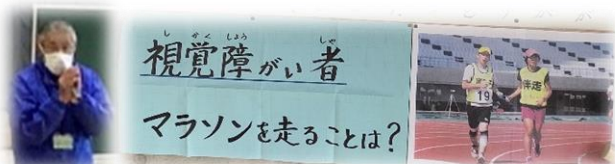 視覚障がい者
しかくしょうしゃ
マラソンを走ることは？
19
伴走